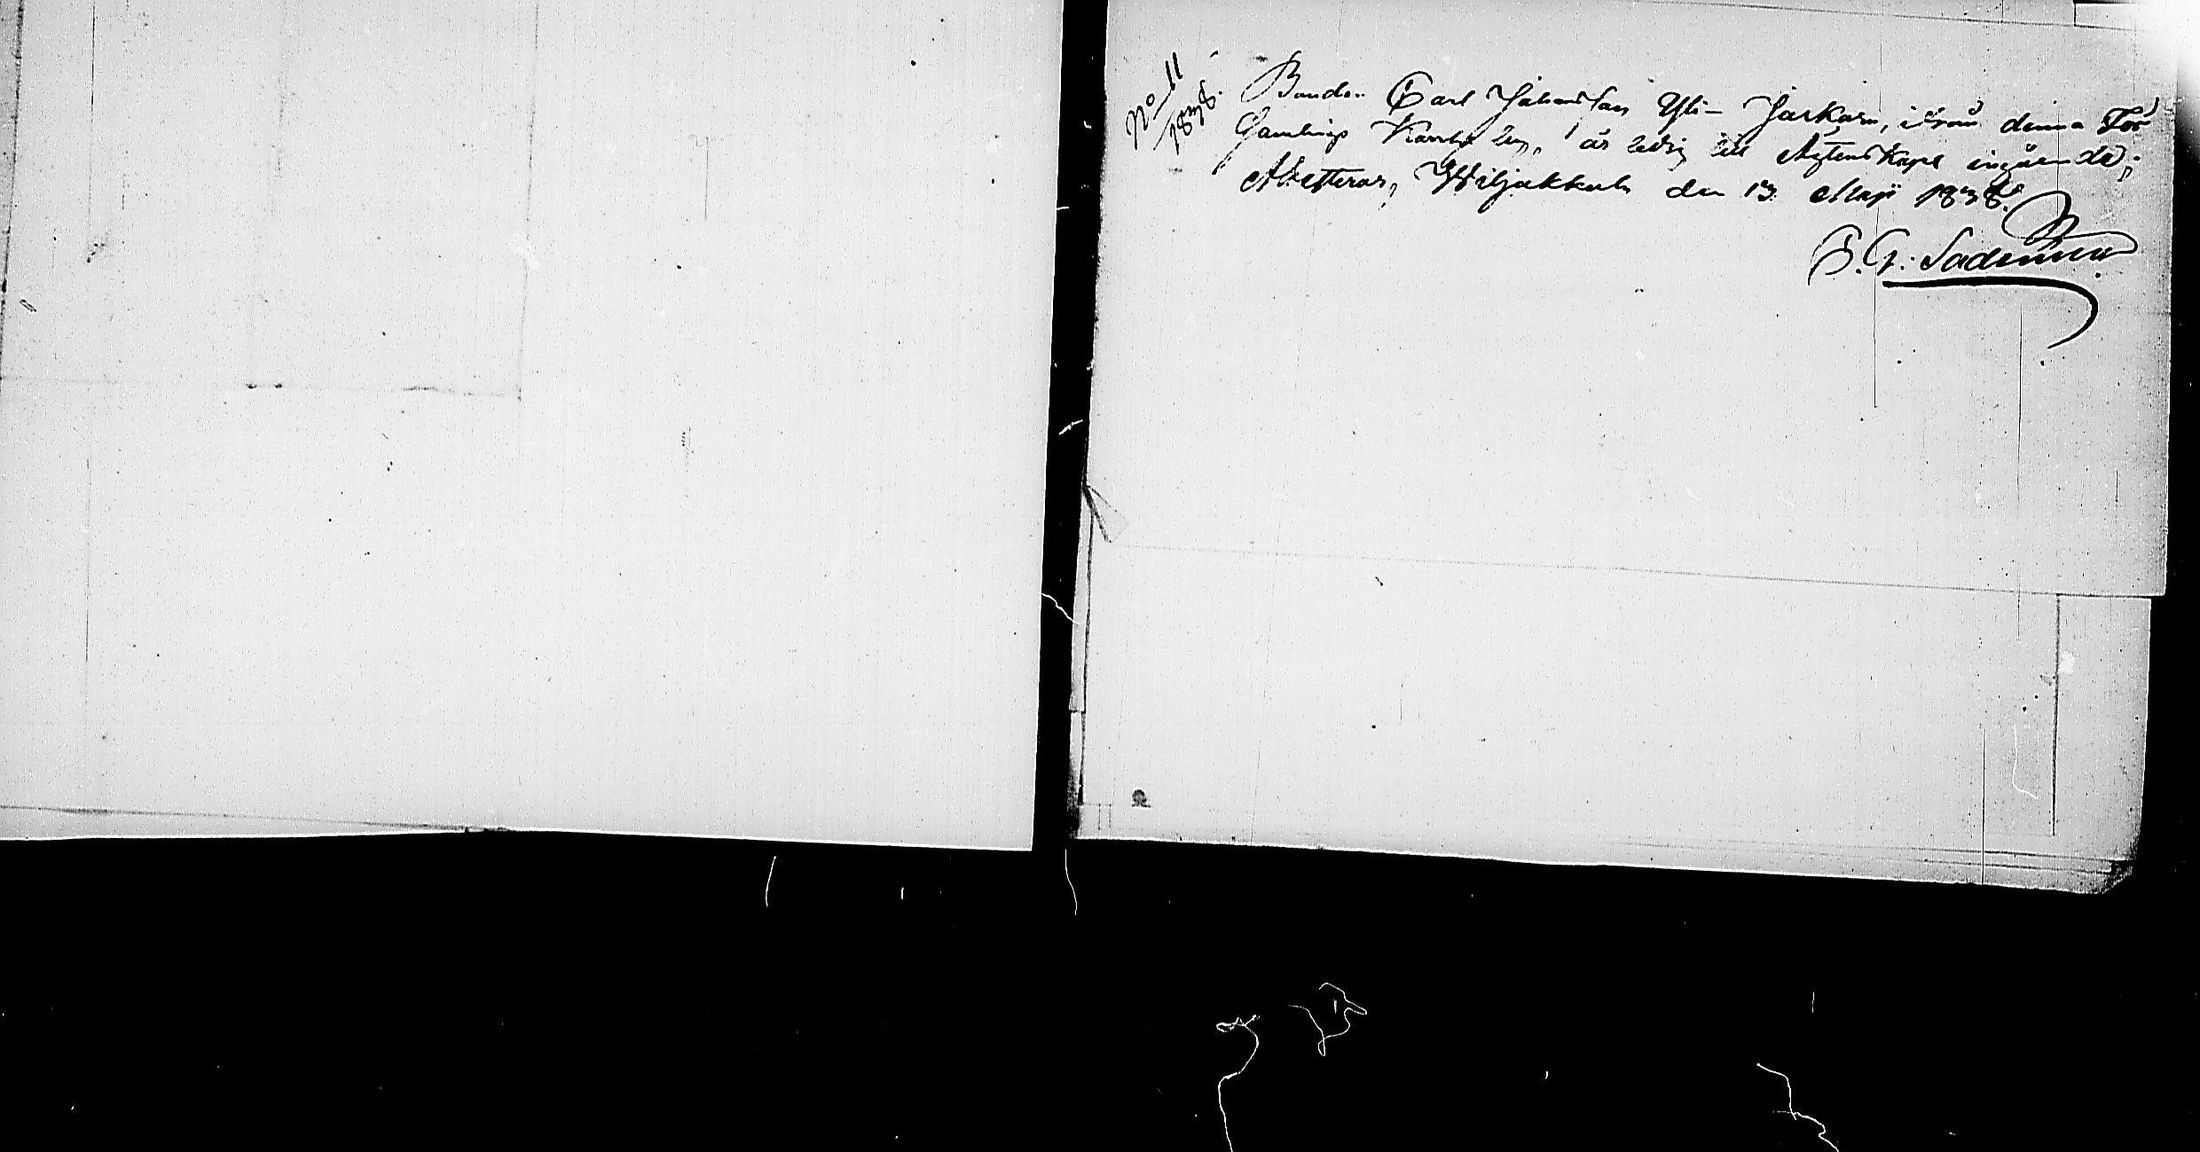 No 11
1838.
Bonden Carl Johansson Yli-Jaskara, ifrån denna För
samlings Karrby, är ledig till Ägtenskaps ingående;
Attesteras, Wiljakkala den 13 Maji 1838.